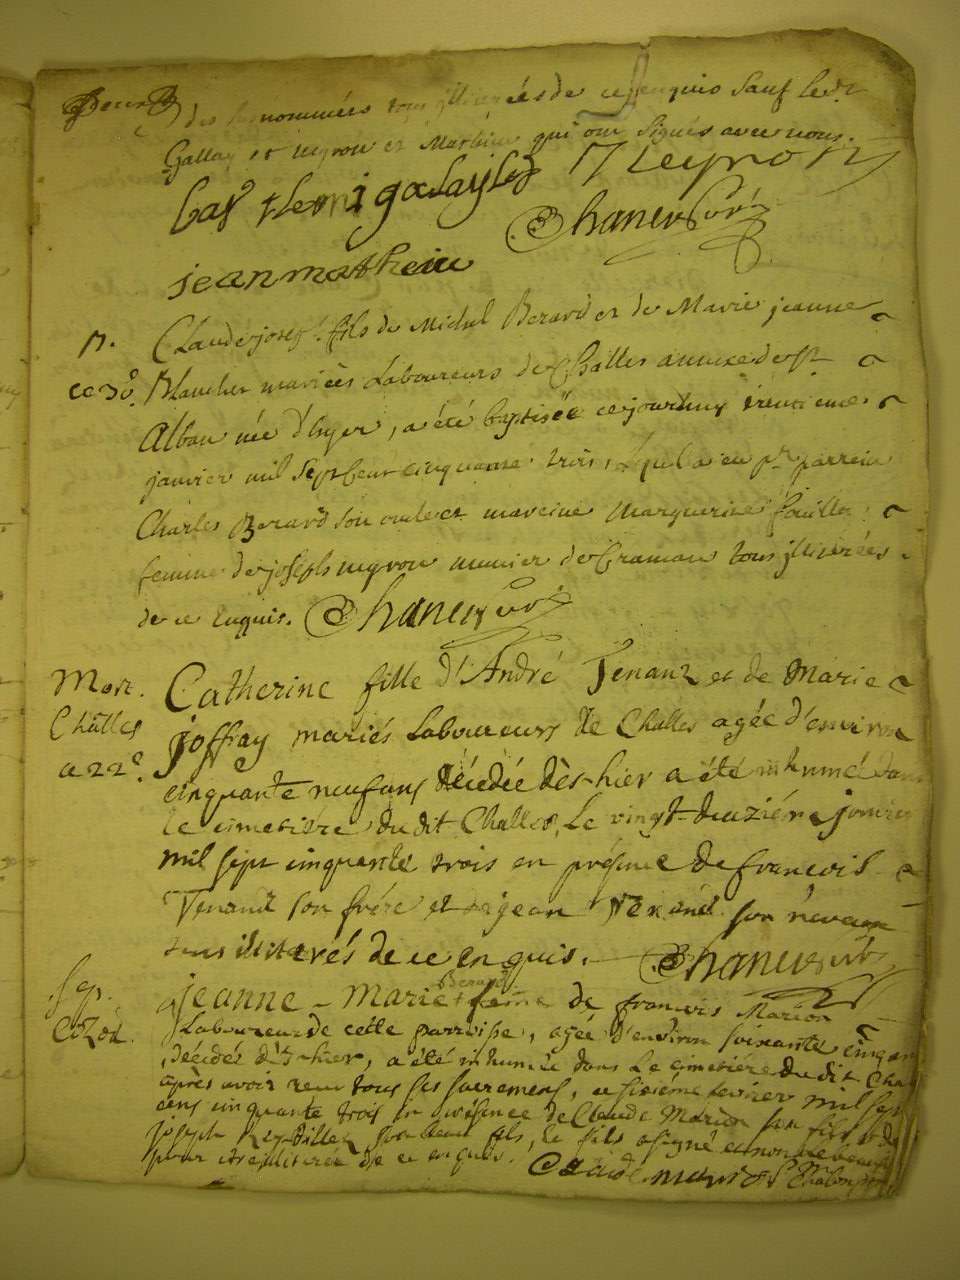 des nommées tous illiterées de ce enquis Sauf led.
Gallay et neyrou et Mathieu qui ont Signés avec nous.
galay Neyron
Chanen Curé
jean matheiu
n.
Claude josef. fils de Michel Berard et de Marie jeanne
ce 30.
Blanchet mariés Laboureurs de Challes annexe de St
Alban née d'hyer, a été baptisée cejourduy trentieme
janvier mil Sept Cent cinquante trois, Lequel a eu pr. parrein
Charles Berard son oncle et mareine Marguerite
femme de joseph neyrou munier de Cramans tous illiterées
de ce Enquis. Chanen Curé
Mort.
Challes
a 22e.
Catherine fille d'André Tenant et de Marie
joffray mariés Laboureurs de Challes agée d'environ
cinquante neuf ans décédée dès-hier a été inhumé dans
le cimetiere du dit Challes, Le vingt-deuziéme janvier
mil sept cinquante trois en présence de francois
Tenand son frére et de jean Tenand son neveux
tous illiterés de ce enquis. Chanen Curé
Sep.
jeanne - Marie Berard femme de francois Marion
Laboureur de cette parroisse, agée d'environ soixante cinq ans
décédés dès-hier, a été inhumée dans Le cimetiére du dit
après avoir reçu tous ses sacremens, ce sixieme fevrier mil sept
cens cinquante trois en présence de Claude Marion son fils et de
joseph son beau fils, le fils a signé et non le beau fils
pour etre illiteré de ce enquis. Claude marion